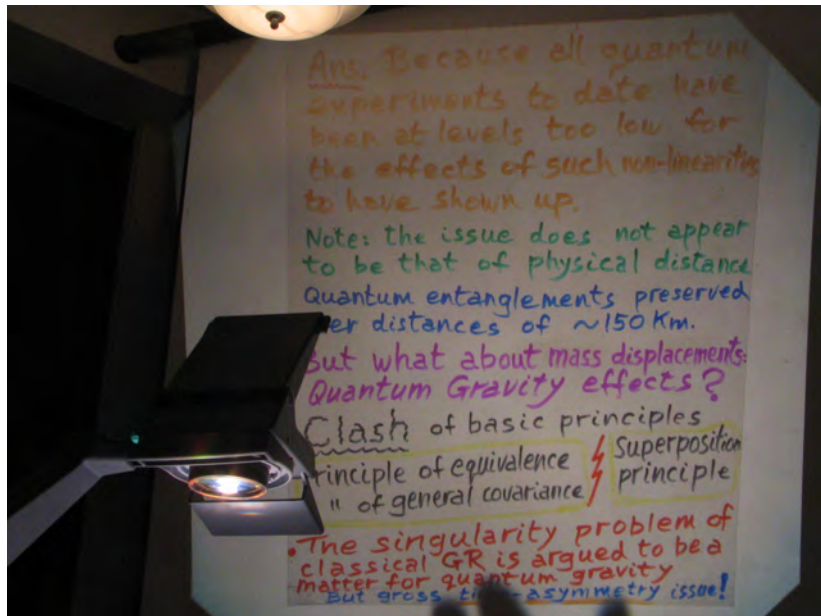 Ans. Because all quantum
experiments to date have
been at levels too low for
the effects of such non-linearities
to have shown up.
Note: the issue does not appear
to be that of physical distance
Quantum entanglements preserved
er distances of ~150 Km.
But what about mass displacements:
Quantum Gravity effects?
Clash of basic principles
rinciple of equivalence
" of general covariance
Superposition
principle
• The singularity problem of
classical GR is argued to be a
matter for quantum gravity
But gross -asymmetry issue!